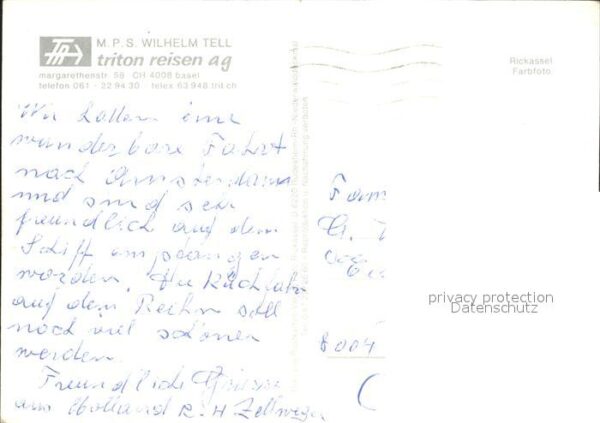 M.P.S. WILHELM TELL
triton reisen ag
margarethenstr. 58 CH 4008 basel
telefon 061 - 22 94 30 telex 63 948 trit.ch
Rickassel
Farbfoto
Wir hatten eine
wunderbare Fahrt
nach Amsterdam
und sind sehr
freundlich auf dem
Schiff empfangen
worden. Die Rückfahrt
auf dem Reihn soll
noch viel schöner
werden.
Freundliche Grüsse
aus Holland R. H Zellweger
Fam
G.
8004
privacy protection
Datenschutz